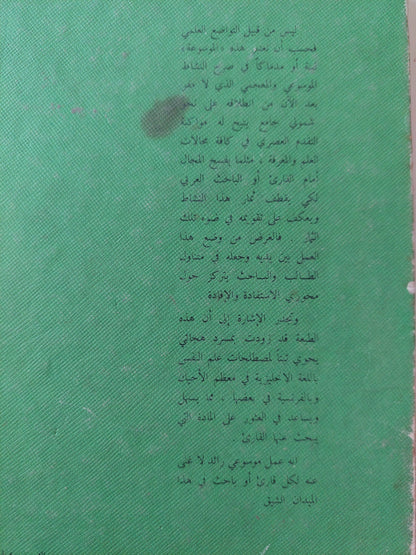 ليس من قبيل التواضع العلمي
فحسب أن نعتبر هذه «الموسوعة»
لبنة أو مدماكاً في صرح النشاط
الموسوعي والمعجمي الذي لا مفر
بعد الآن من انطلاقه على نحو
شمولي جامع يتيح له مواكبة
التقدم العصري في كافة مجالات
العلم والمعرفة ، مثلما يفسح المجال
أمام القارئ أو الباحث العربي
لكي يقطف ثمار هذا النشاط
ويعكف على تقويمه في ضوء تلك
الثمار . فالغرض من وضع هذا
العمل بين يديه وجعله في متناول
الطالب والباحث يتركز حول
محوري الاستفادة والإفادة .
وتجدر الإشارة إلى أن هذه
الطبعة قد زودت بمسرد هجائي
يحوي ثبتاً لمصطلحات علم النفس
باللغة الانجليزية في معظم الأحيان
وبالفرنسية في بعضها ، مما يسهل
ويساعد في العثور على المادة التي
يبحث عنها القارئ .
انه عمل موسوعي رائد لا غنى
عنه لكل قارئ أو باحث في هذا
الميدان الشيق